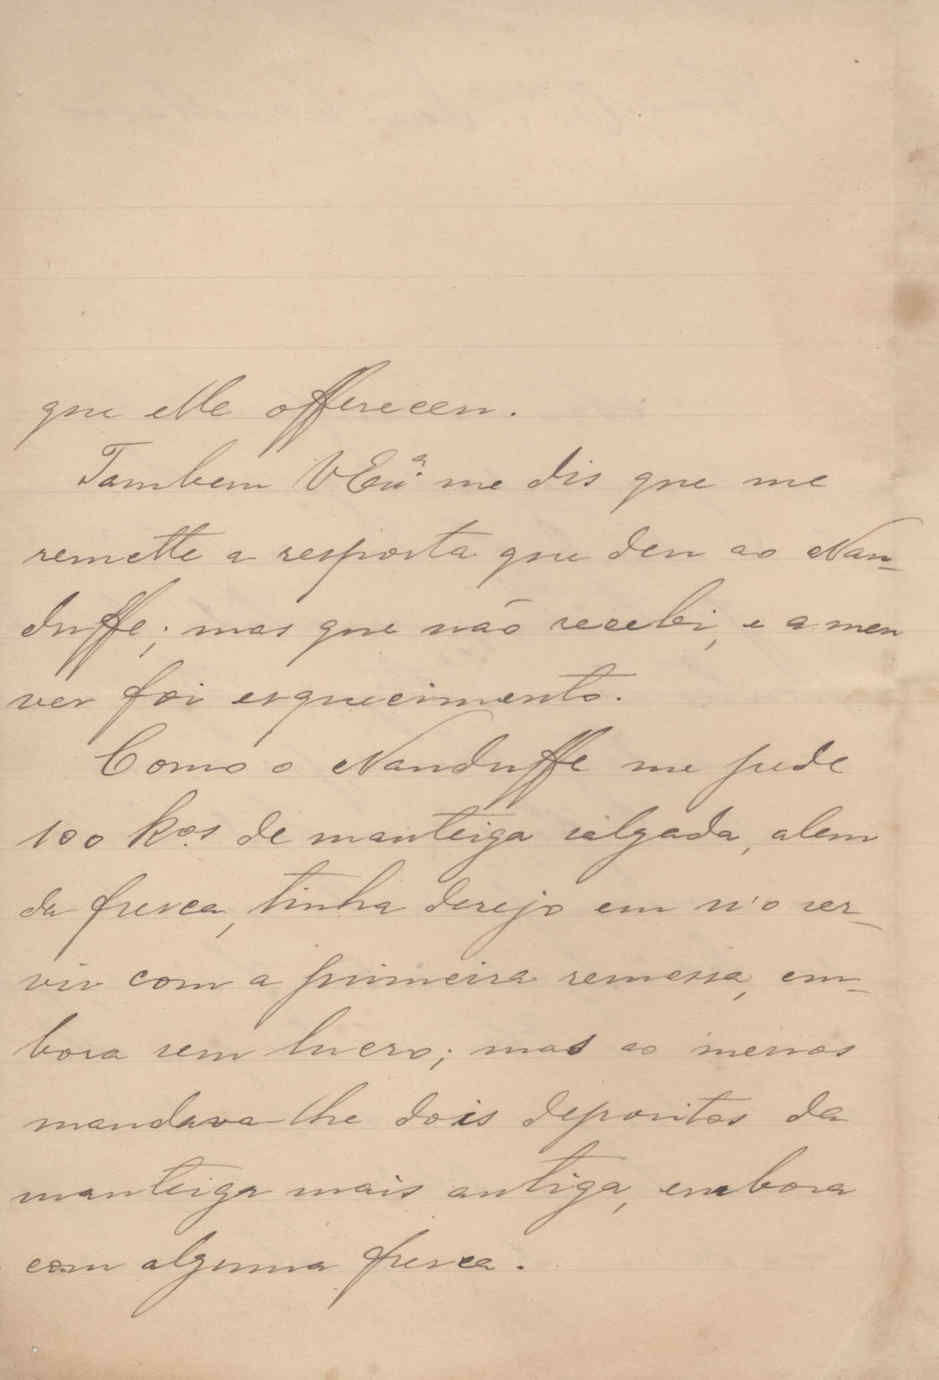 que elle offereceu.
Tambem VExª me dis que me
remette a resposta que deu ao Nan-
duffe; mas que não recebi, e a meu
ver foi esquecimento.
Como o Nanduffe me pede
100 kos. de manteiga salgada, alem
da fresca, tinha desejo em n'o ser-
vir com a primeira remessa, em-
bora sem lucro; mas ao menos
mandava-lhe dois depositos da
manteiga mais antiga, embora
com alguma fresca.